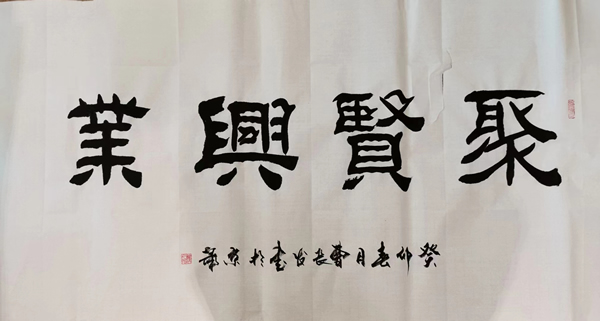 聚賢興業
癸卯春月曹長有書於京華